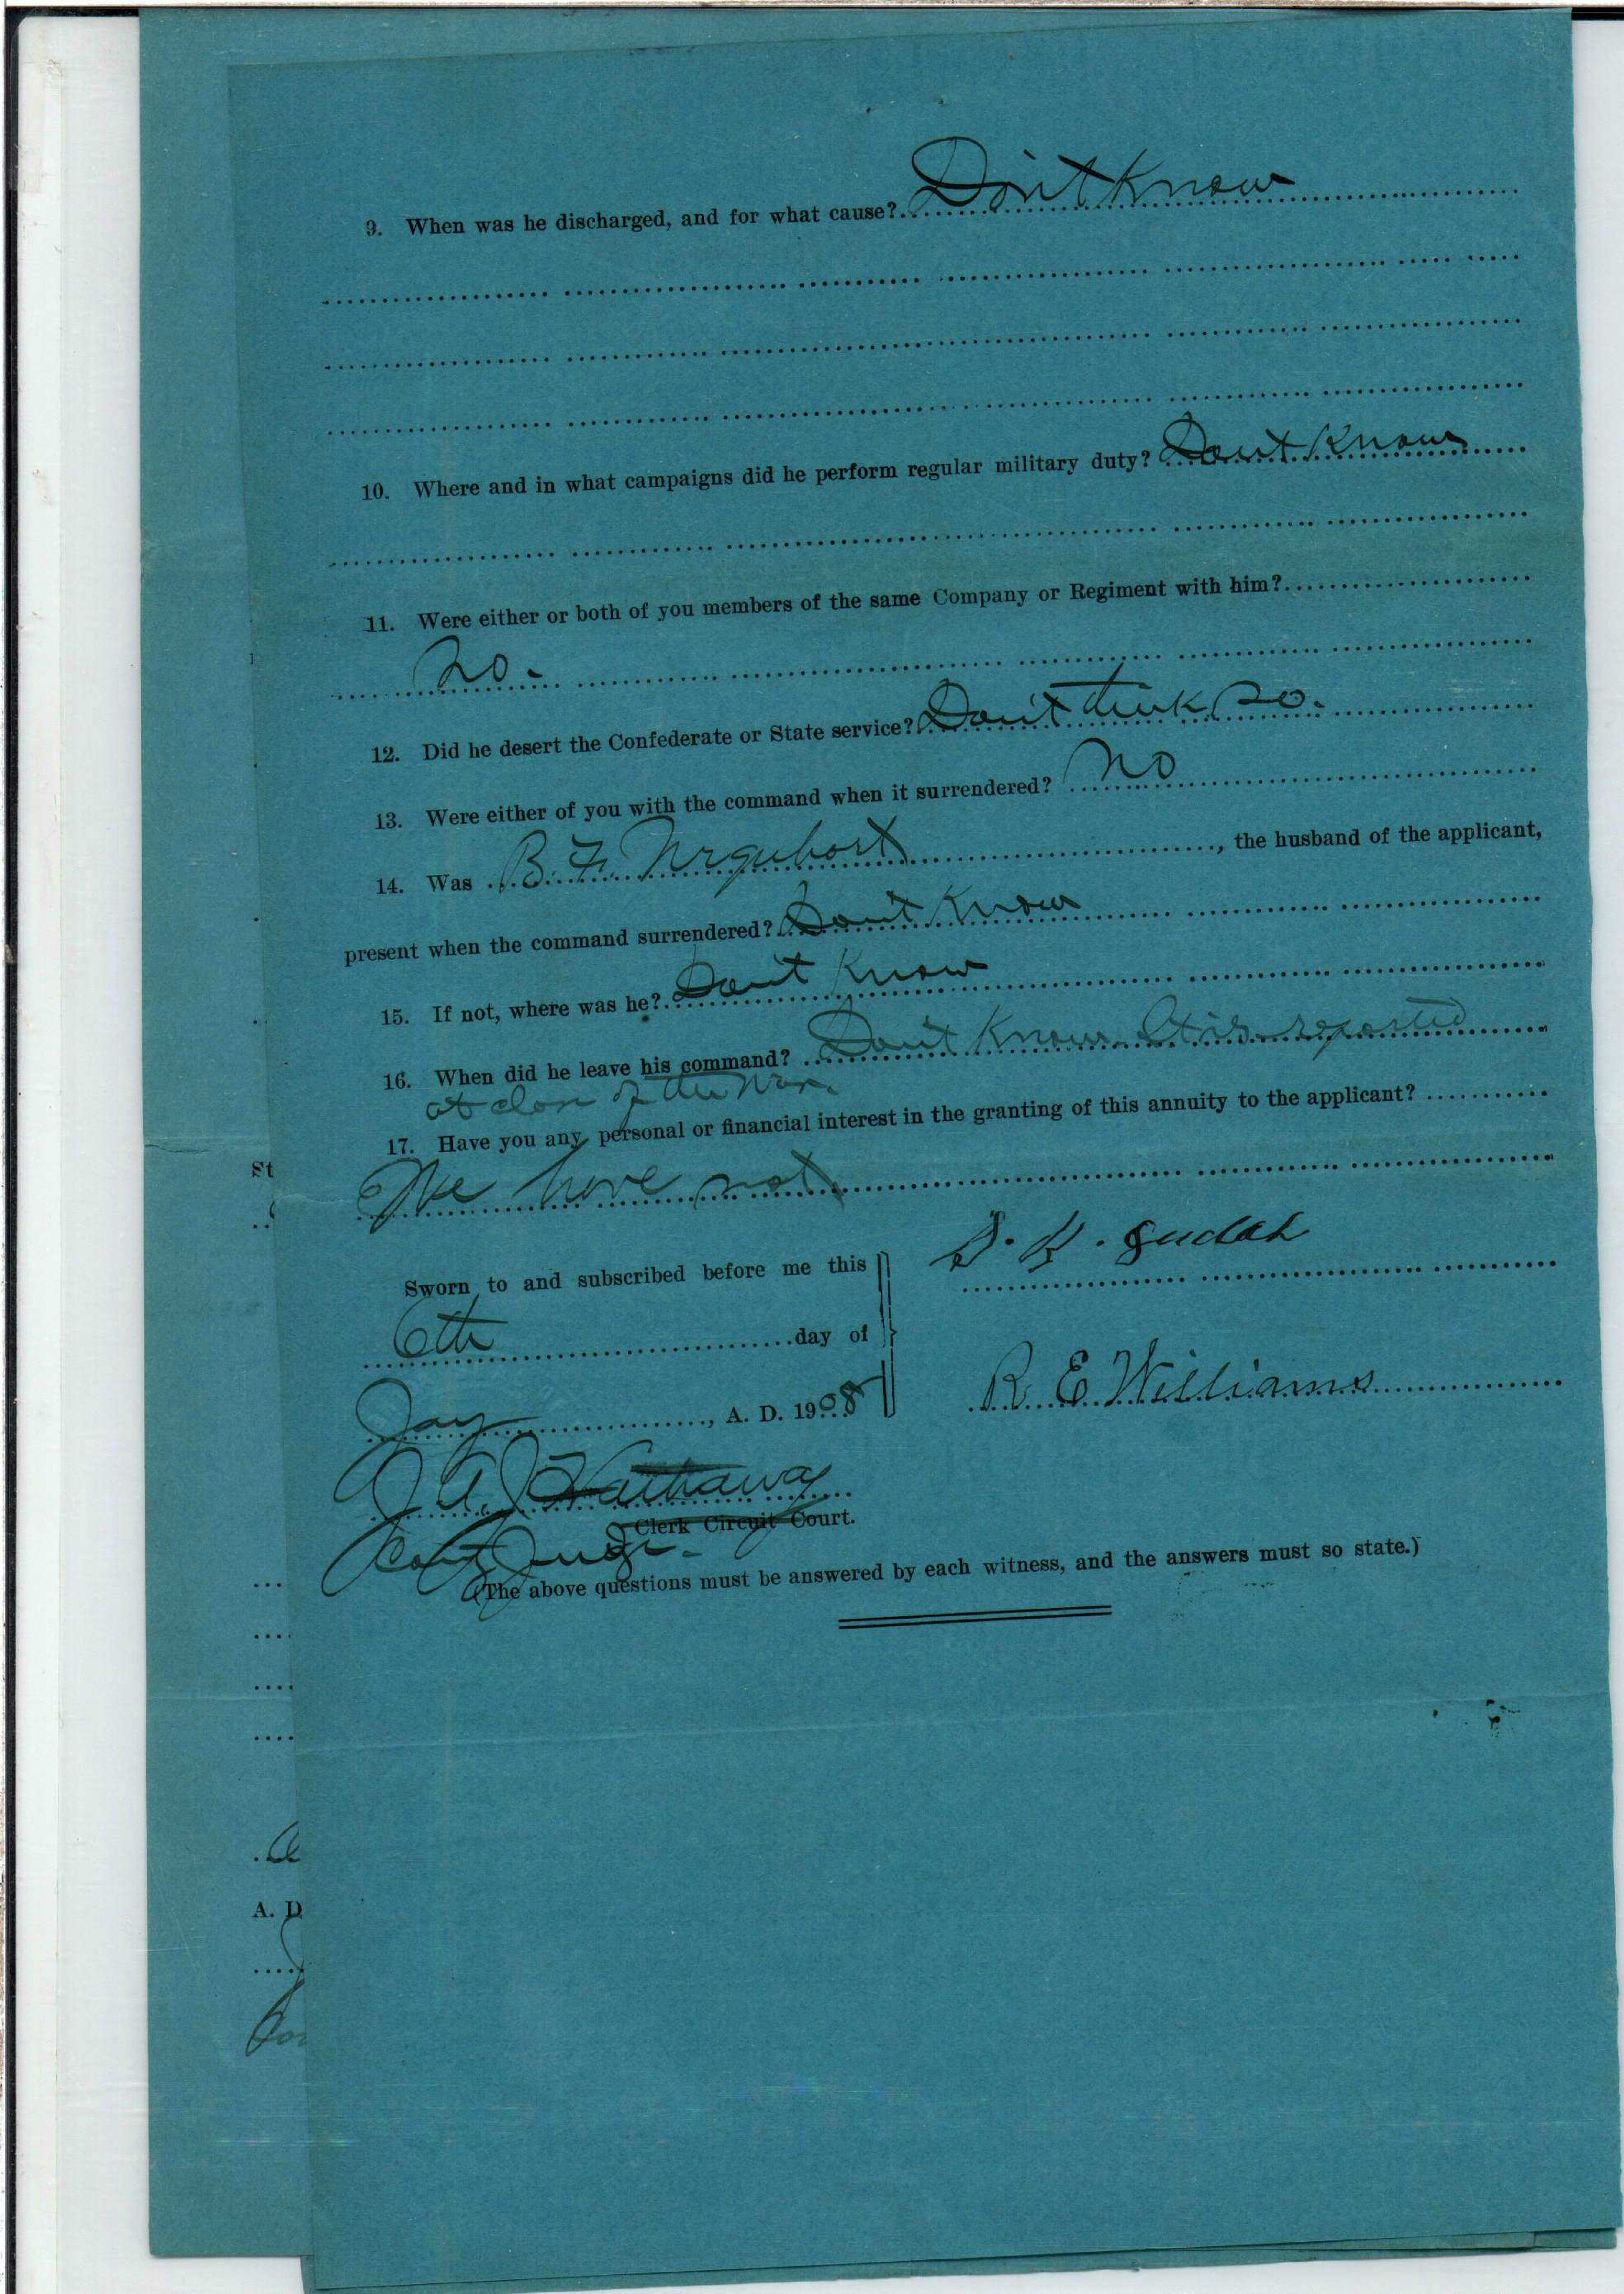 9. When was he discharged, and for what cause? Don't Know
10. Where and in what campaigns did he perform regular military duty? Dont Know
11. Were either or both of you members of the same Company or Regiment with him?
no-
12. Did he desert the Confederate or State service? Don't think so.
13. Were either of you with the command when it surrendered? no
14. Was B. F. Urquhart, the husband of the applicant,
present when the command surrendered? Dont Know
15. If not, where was he? Dont Know
16. When did he leave his command? Don't Know It is reported
at close of the War.
17. Have you any personal or financial interest in the granting of this annuity to the applicant?
We have not
Sworn to and subscribed before me this
6th day of
Jany, A. D. 1908
R. E Williams
Hathaway
Clerk Circuit Court.
Judge-
(The above questions must be answered by each witness, and the answers must so state.)
St
A. D